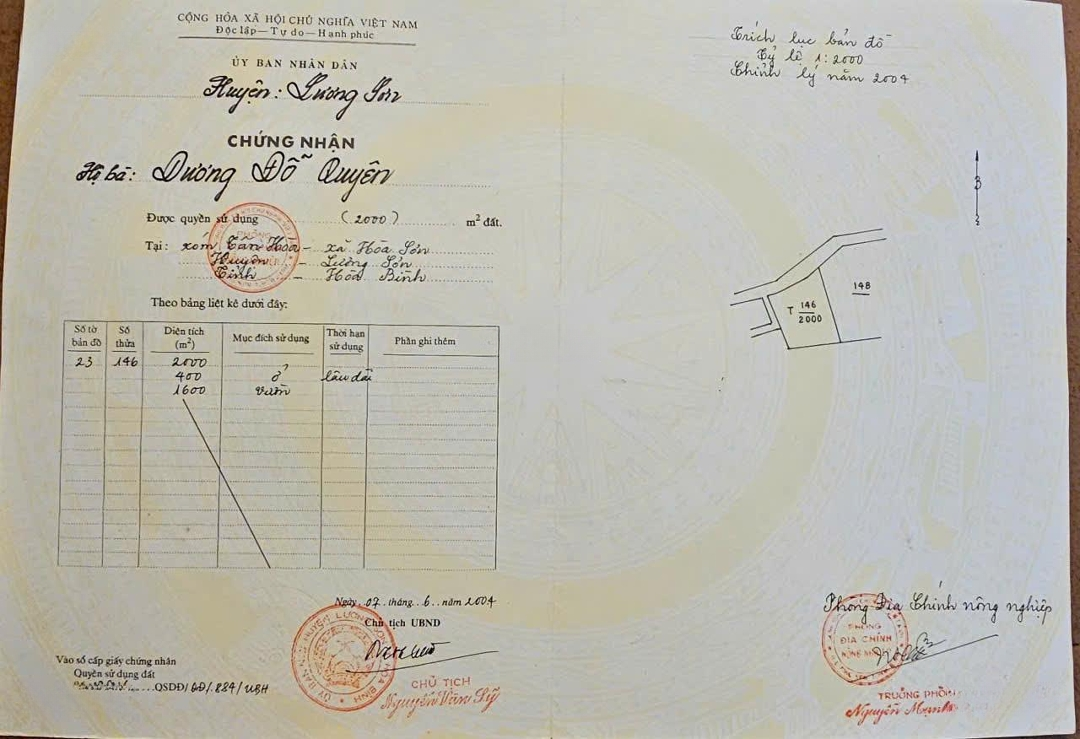 CỘNG HÒA XÃ HỘI CHỦ NGHĨA VIỆT NAM
Độc lập — Tự do — Hạnh phúc
ỦY BAN NHÂN DÂN
Huyện: Lương Sơn
CHỨNG NHẬN
Hộ bà: Dương Đỗ Quyên
Được quyền sử dụng (2000) m² đất.
Tại: xóm Tân Hòa - xã Hòa Sơn
Huyện - Lương Sơn
Tỉnh - Hòa Bình
Theo bảng liệt kê dưới đây:
Số tờ bản đồ Số thửa Diện tích (m²) Mục đích sử dụng Thời hạn sử dụng Phần ghi thêm
23 146 2000
400 ở lâu dài
1600 vườn
Ngày 07 tháng 6 năm 2004
Chủ tịch UBND
CHỦ TỊCH
Nguyễn Văn Sỹ
Vào sổ cấp giấy chứng nhận
Quyền sử dụng đất
QSDĐ/ 884/UBH
Trích lục bản đồ
Tỷ lệ 1:2000
Chỉnh lý năm 2004
B
T 146
2000
148
Phòng Địa Chính nông nghiệp
PHÒNG
ĐỊA CHÍNH
TRƯỞNG PHÒNG
Nguyễn Mạnh